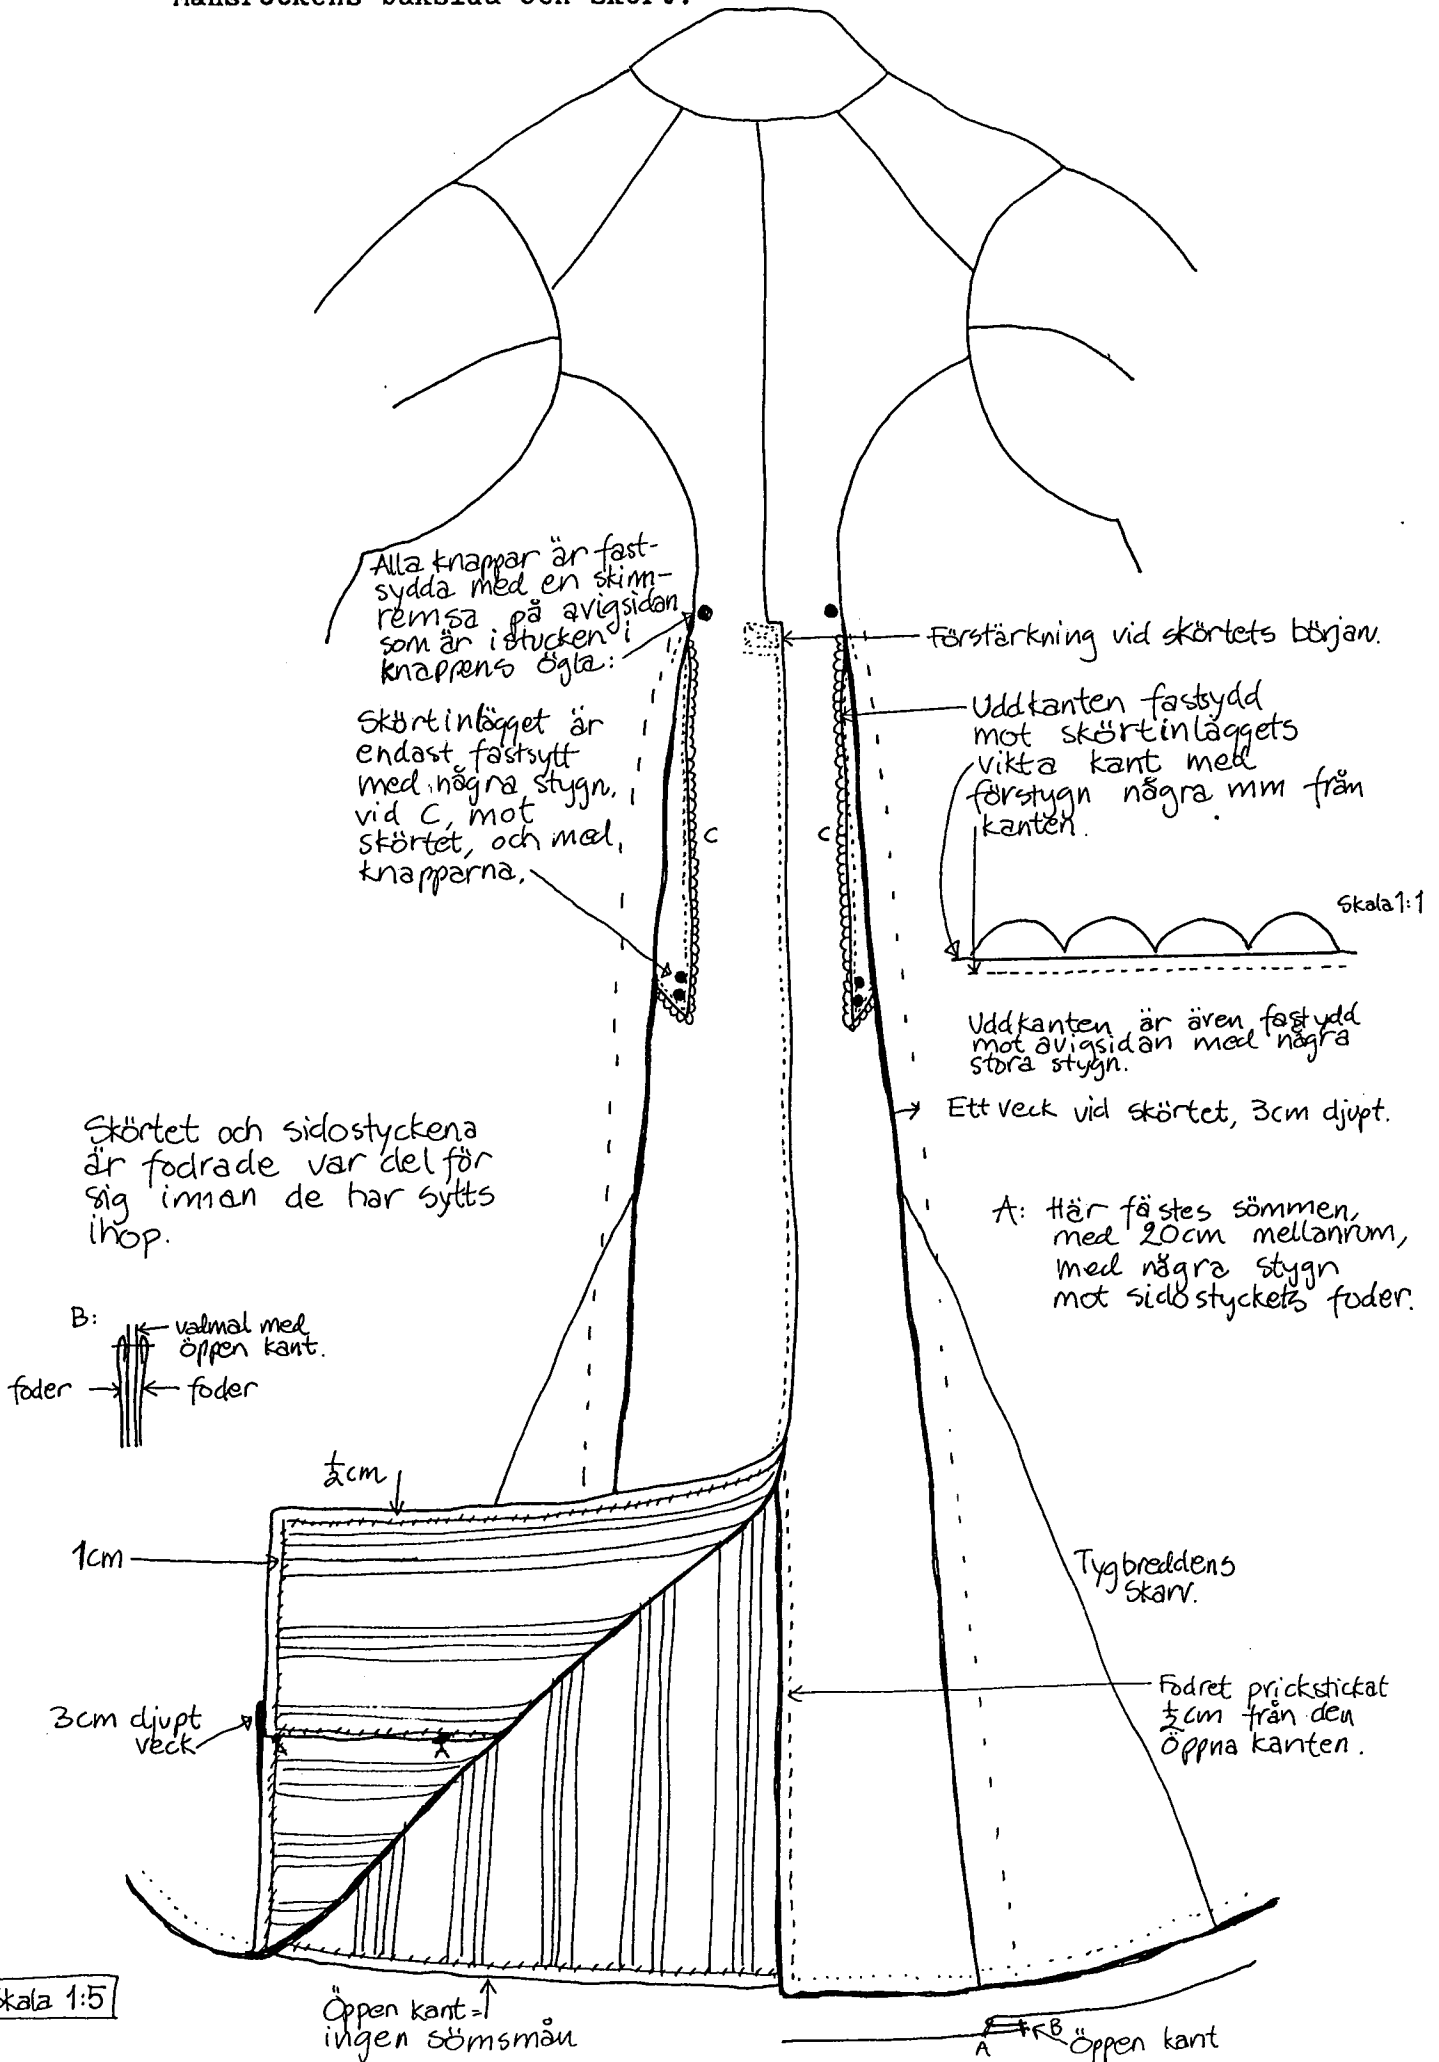 Mansrockens baksida och skört.
Alla knappar är fast-
sydda med en skinn-
remsa på avigsidan
som är istucken i
knappens ögla:
Förstärkning vid skörtets början.
Skörtinlägget är
endast fastsytt
med några stygn,
vid C, mot
skörtet, och med
knapparna.
Uddkanten fastsydd
mot skörtinläggets
vikta kant med
förstygn några mm från
kanten.
C
C
Skala 1:1
Uddkanten är även fastydd
mot avigsidan med några
stora stygn.
Ett veck vid skörtet, 3cm djupt.
Skörtet och sidostyckena
är fodrade var del för
sig innan de har sytts
ihop.
A: Här fästes sömmen,
med 20cm mellanrum,
med några stygn
mot sidostyckets foder.
B:
vadmal med
öppen kant.
foder
foder
½cm
1cm
Tygbreddens
skarv.
3cm djupt
veck
A
A
Fodret prickstickat
½cm från den
öppna kanten.
Skala 1:5
Öppen kant=
ingen sömsmån
A
B
Öppen kant